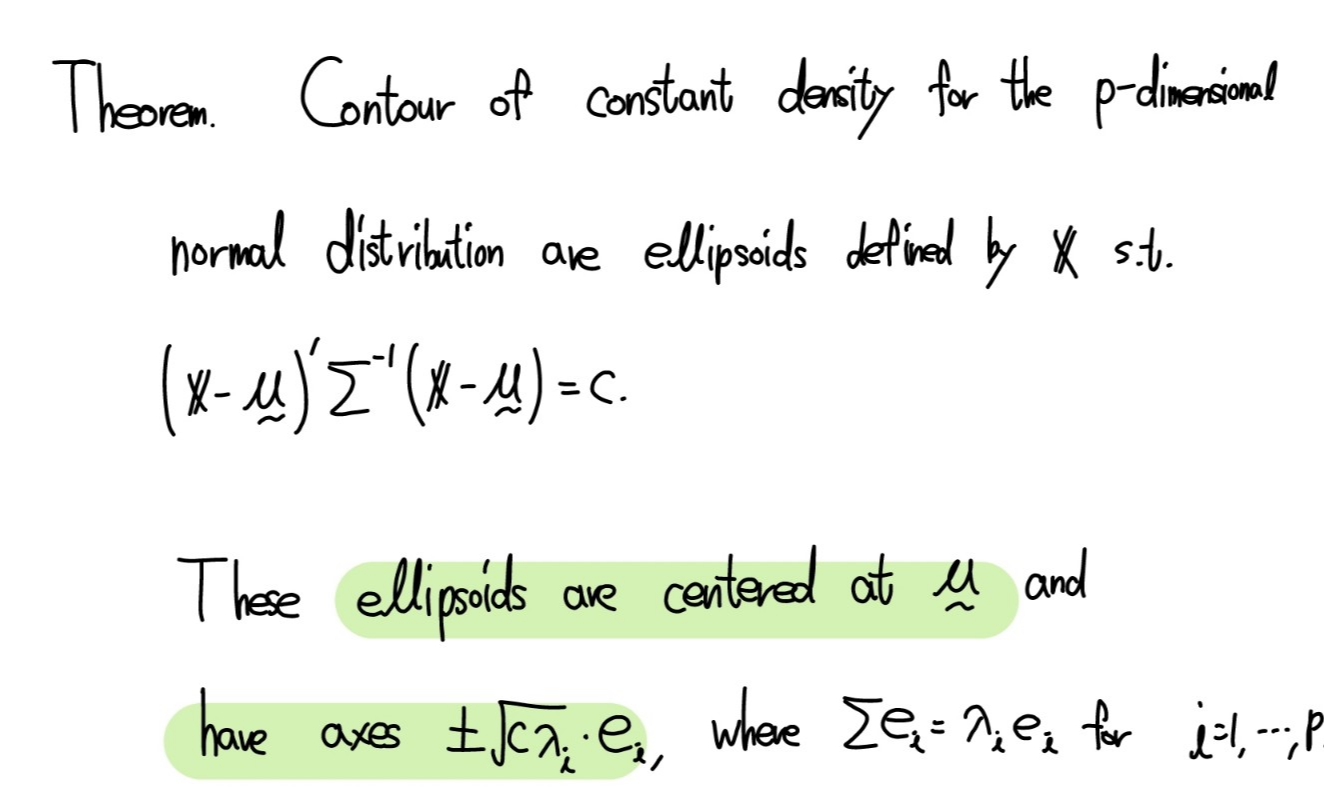 Theorem. Contour of constant density for the p-dimensional
normal distribution are ellipsoids defined by 𝕏 s.t.
(𝕏-μ̰)'Σ⁻¹(𝕏-μ̰)=c.
These ellipsoids are centered at μ̰ and
have axes ±√(cλᵢ)·eᵢ, where Σeᵢ=λᵢeᵢ for i=1,⋯,p.